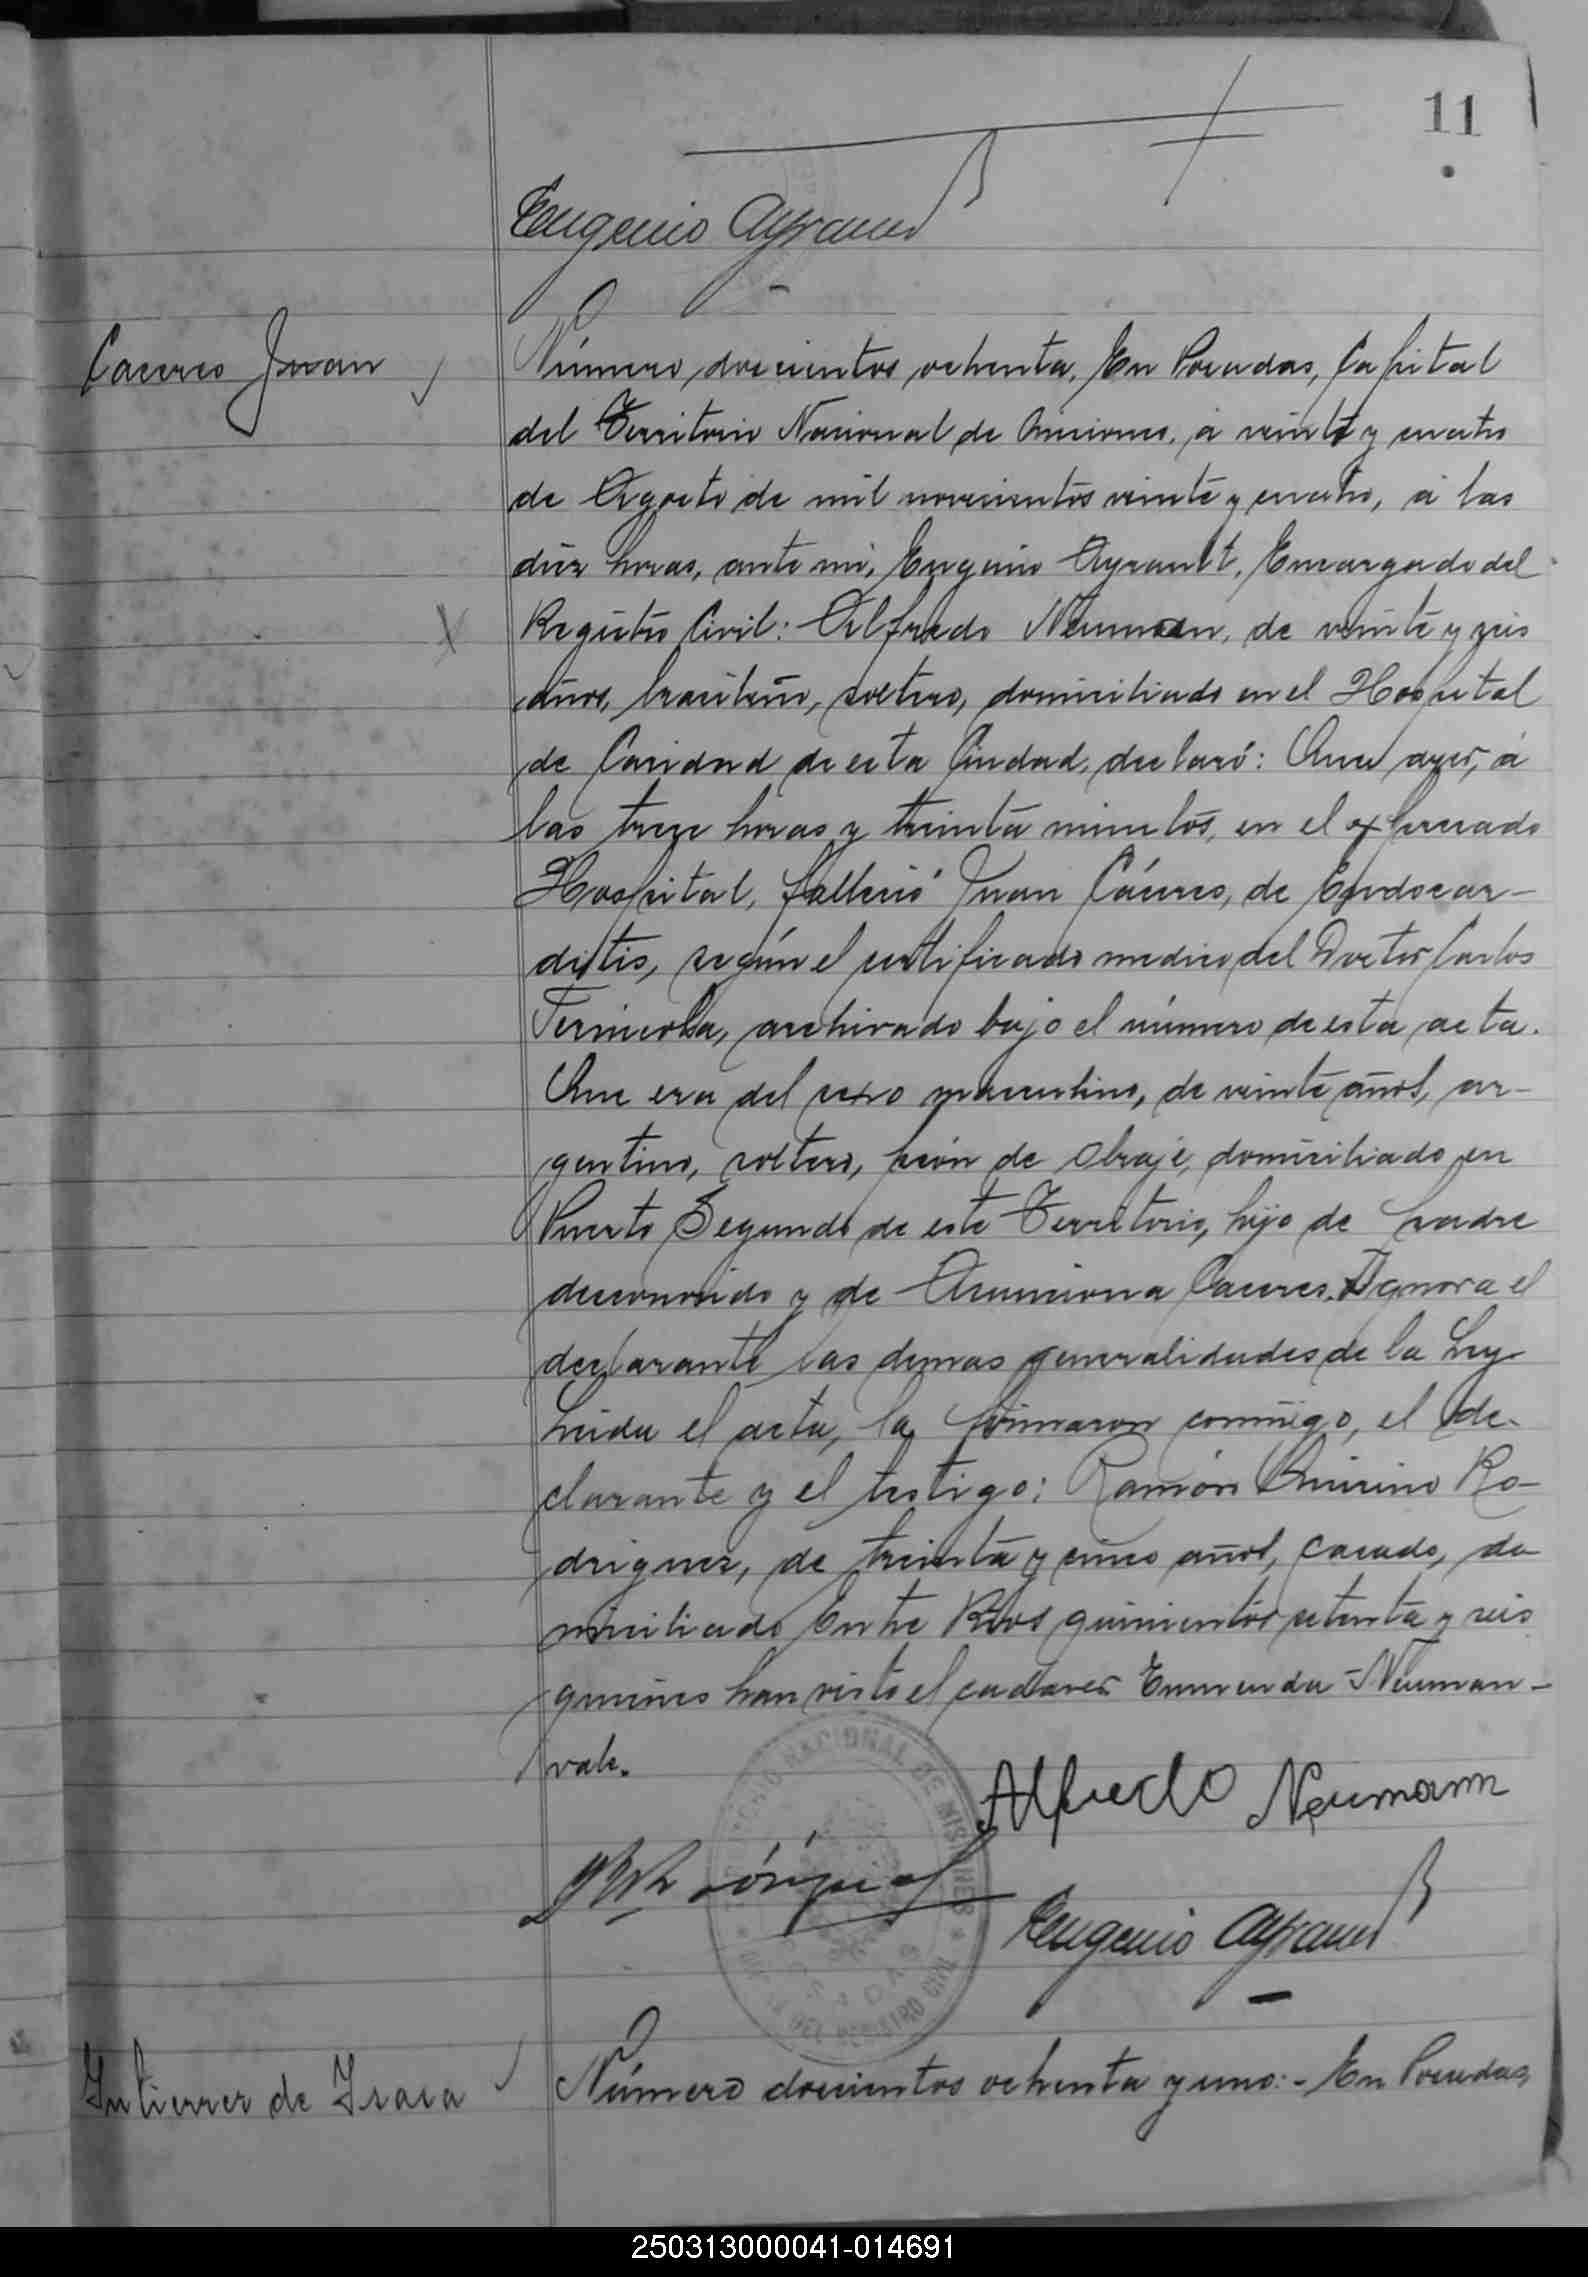 11
Eugenio Ayrault
Caceres Juan
Número doscientos ochenta, En Posadas, Capital
del Territorio Nacional de Misiones, á veinte y cuatro
de Agosto de mil novecientos veinte y cuatro, á las
diez horas, ante mi, Eugenio Ayrault, Encargado del
Registro Civil: Alfredo Neuman, de veinte y seis
años, brasileño, soltero, domiciliado en el Hospital
de Caridad de esta Ciudad, declaró: Que ayer, á
las treze horas y treinta minutos, en el expresado
Hospital, falleció Juan Cáceres, de Endocar-
ditis, según el certificado medico del Doctor Carlos
archivado bajo el número de esta acta.
Que era del sexo masculino, de veinte años, ar-
gentino, soltero, peón de Obraje, domiciliado en
Puerto Segundo de este Territorio, hijo de padre
desconocido y de Asunciona Caceres. Ignora el
declarante las demas generalidades de la Ley
Leida el acta, la firmaron conmigo, el de-
clarante y el testigo: Ramón Quirino Ro-
driguez, de treinta y cinco años, casado, do
miciliado Entre Rios quinientos setenta y seis
quienes han visto el cadaver Enmenda - Neuman -
vale.
Alfredo Neumann
Eugenio Ayrault
TERRITORIO NACIONAL DE MISIONES
REGISTRO CIVIL
Gutierrez de Isasa
Número doscientos ochenta y uno: - En Posadas,
250313000041-014691